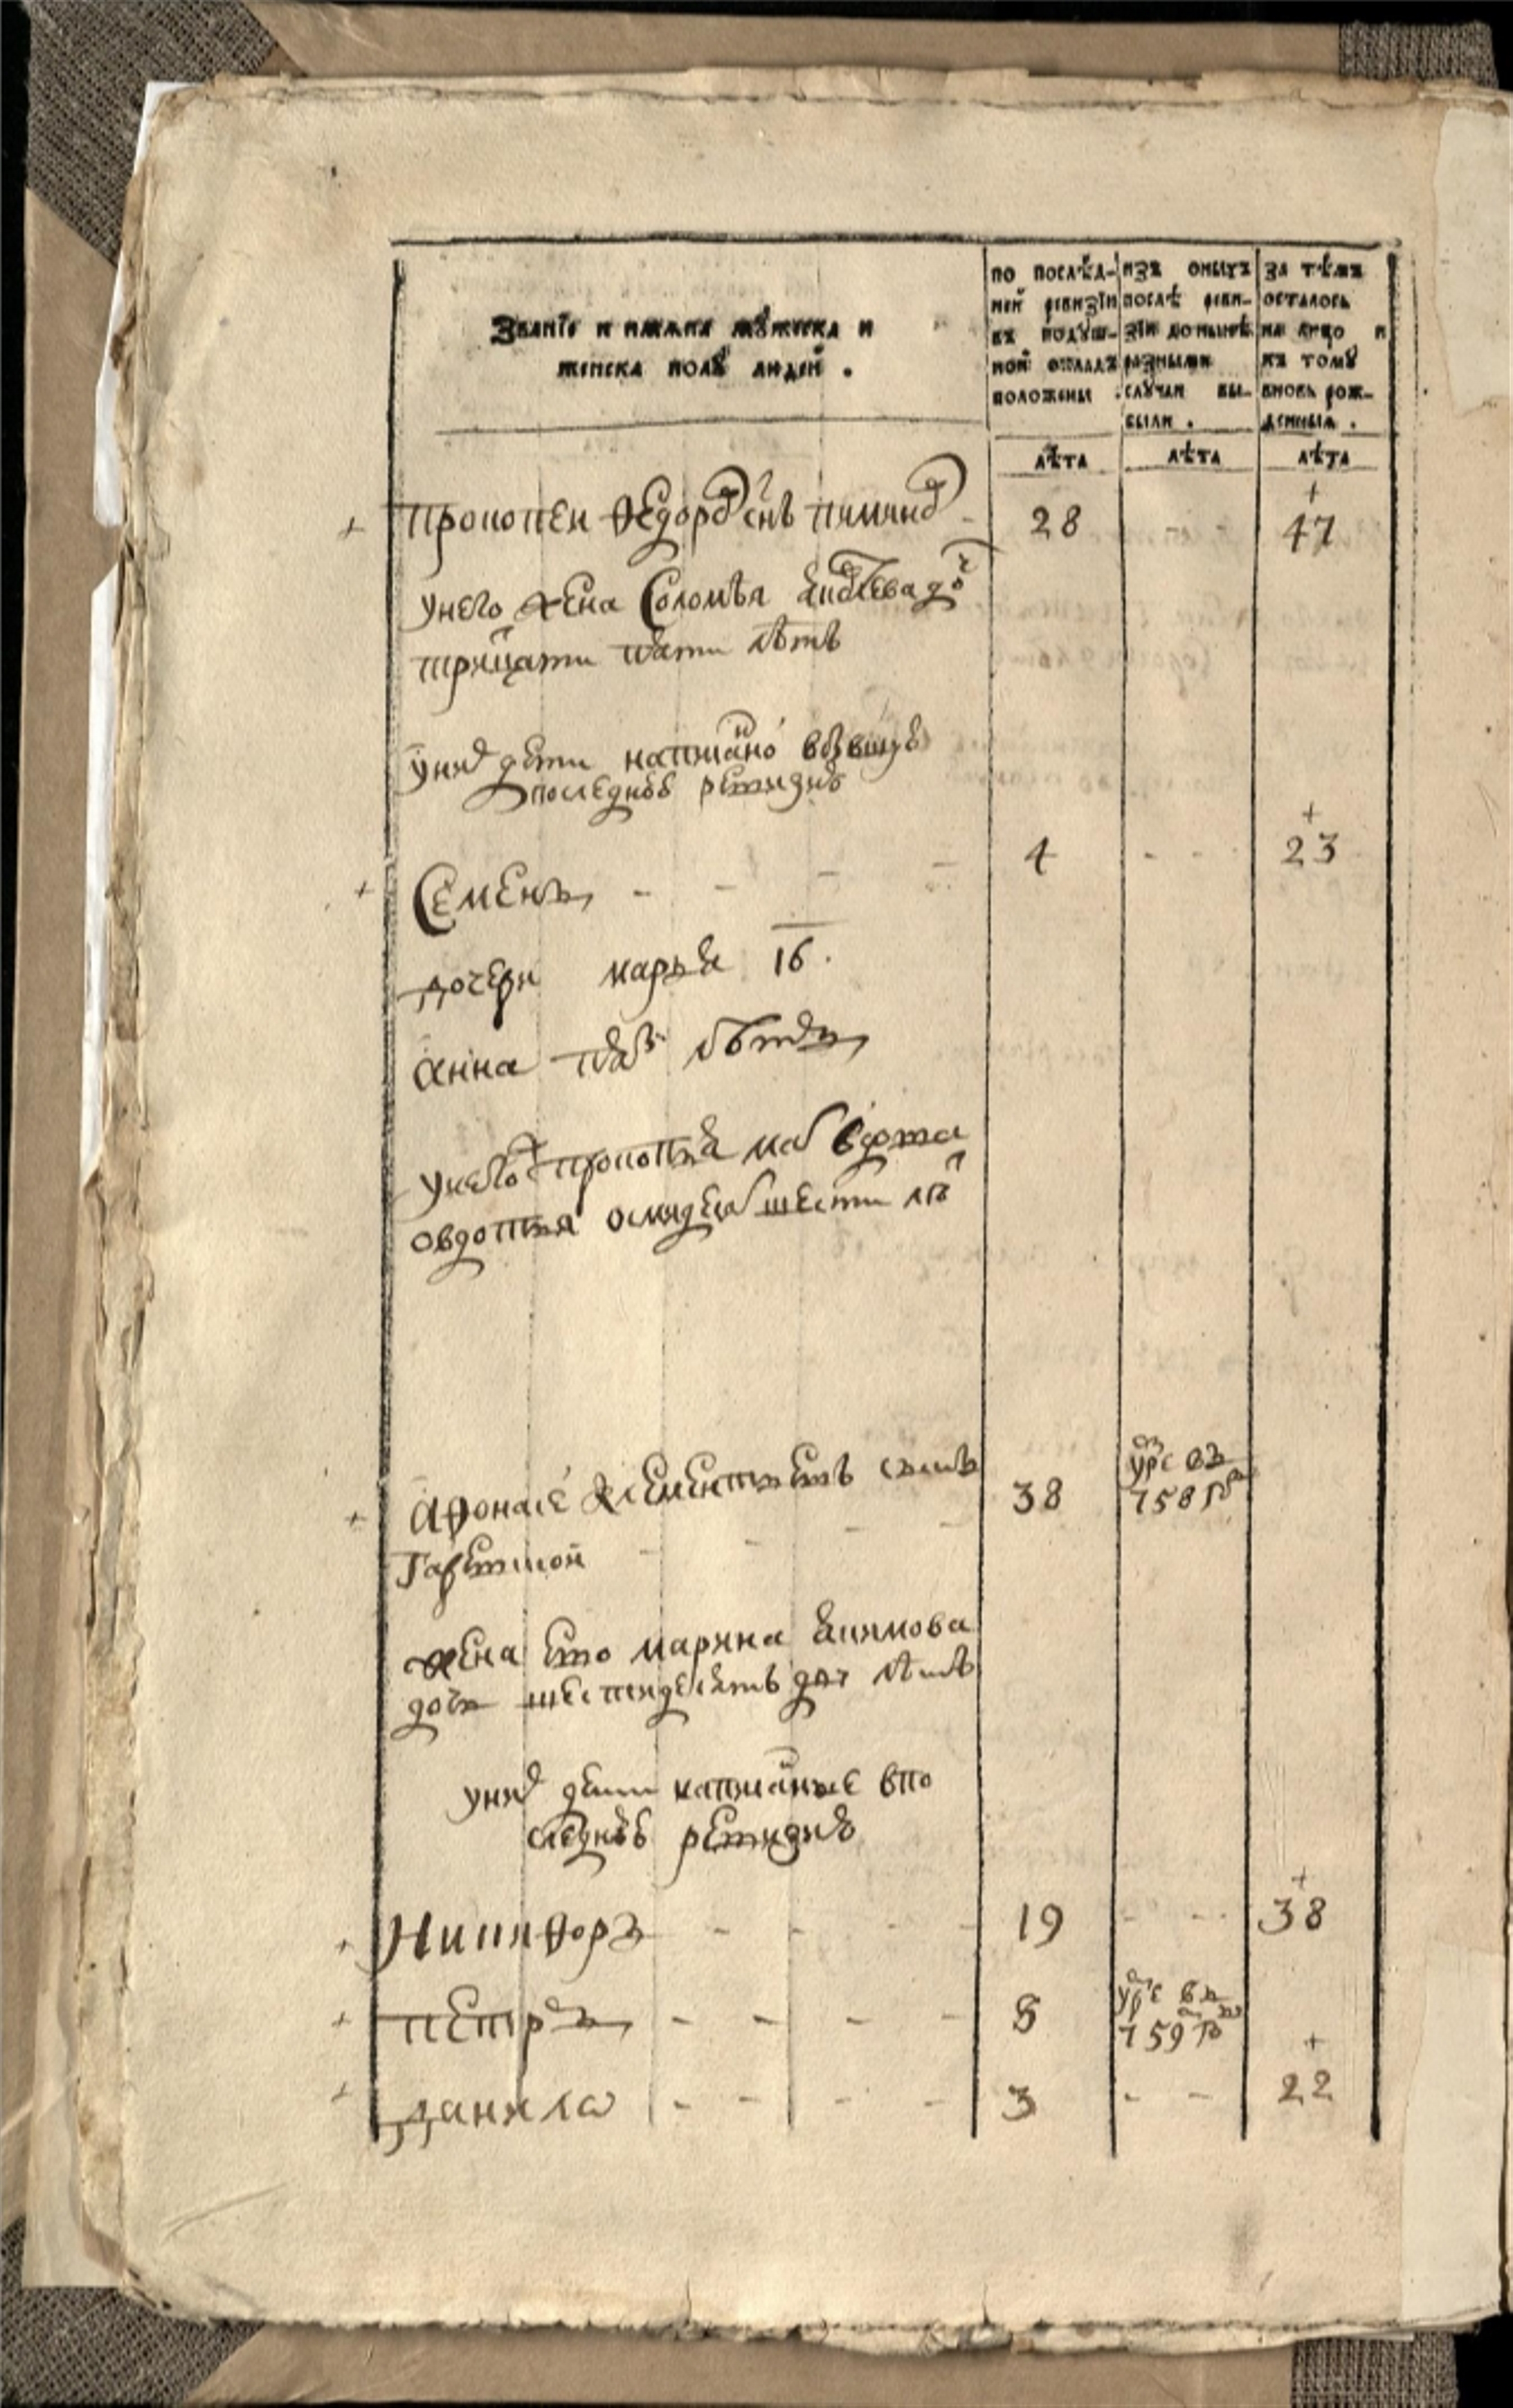 Званїе и имѧна мꙋжеска и
женска полꙋ людей .
по послѣд-
ней ревизїи
въ подꙋш-
ной окладъ
положены .
изъ оныхъ
послѣ реви-
зїи до нынѣ
разными
случаи вы-
были .
за тѣмъ
осталось
на лицо и
къ томꙋ
вновь рож-
денныѧ .
лѣта лѣта лѣта
+ прокопеи Ѳедоров снъ 28 + 47
унего жена Соломѣя доч
трицати пяти лѣтъ
уних дети написано
последнѣѣ ревизиѣ
+ Семенъ - - - - 4 - - + 23
дочери марья 16 .
анна пяти лѣтъ
унегож прокопья мат вдова
овдотья осмидесят шести лѣт
+ Афонасе Клементьевъ сынъ 38 умре въ
758 году
жена ево марина Акимова
дочь шестидесять лѣтъ
уних дети написаные впо
следнѣѣ ревизиѣ
+ Никиѳоръ - - - 19 - - + 38
+ петръ - - - - 8 умре въ
759 году
+ данило - - - - 3 - - + 22